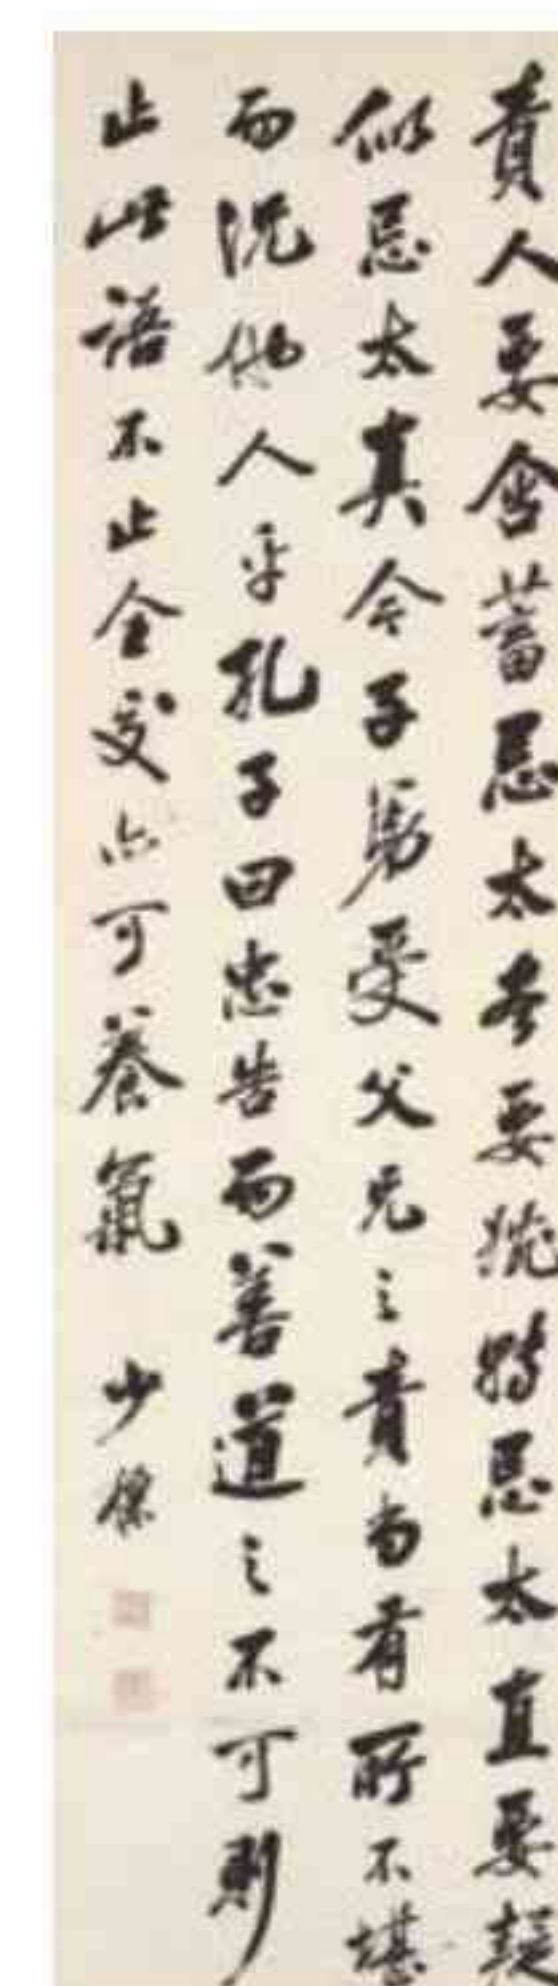 責人要含蓄忌太盡要婉轉忌太直要疑
似忌太真今子弟受父兄之責尚有所不堪
而況他人乎孔子曰忠告而善道之不可則
止此語不止全交亦可養氣 少